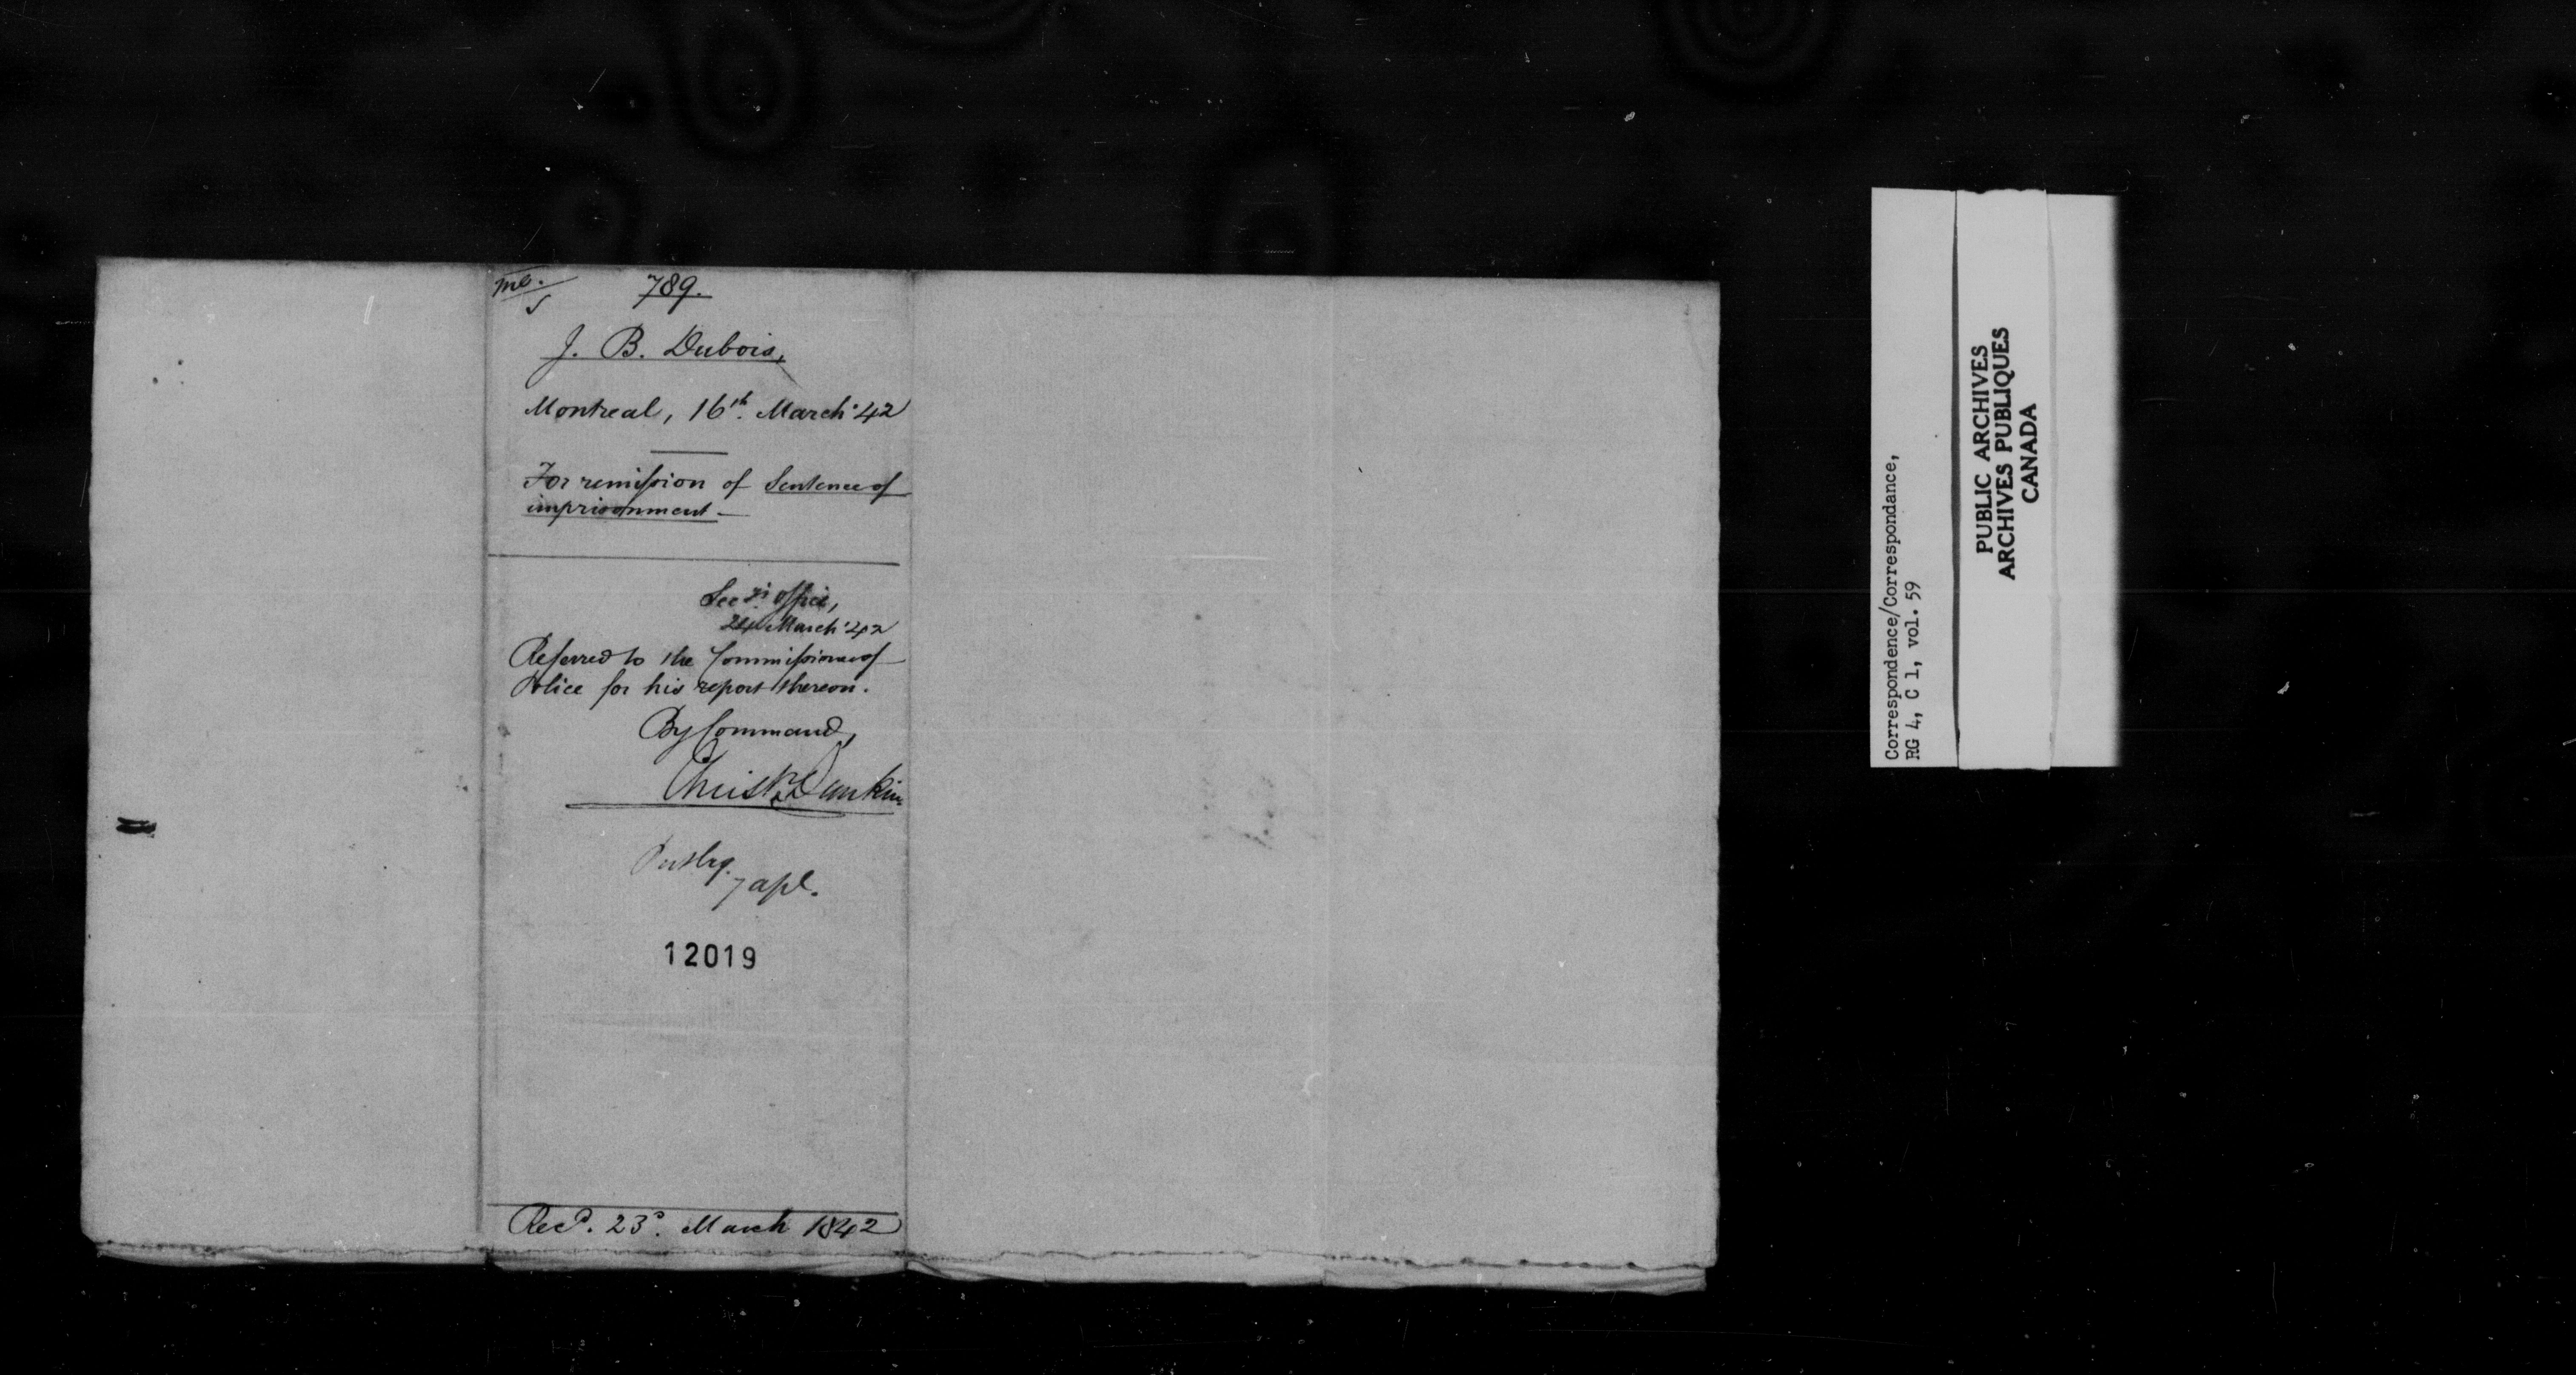 789.
J. B. Dubois,
Montreal, 16th. March '42
For remission of Sentence of
imprisonment -
Secy's office,
24 March '42
Referred to the Commissioner of
Police for his report thereon.
By Command,
Christr. Dunkin
7 apl.
12019
Recd. 23d. March 1842
Correspondence/Correspondance,
RG 4, C 1, vol. 59
PUBLIC ARCHIVES
ARCHIVES PUBLIQUES
CANADA